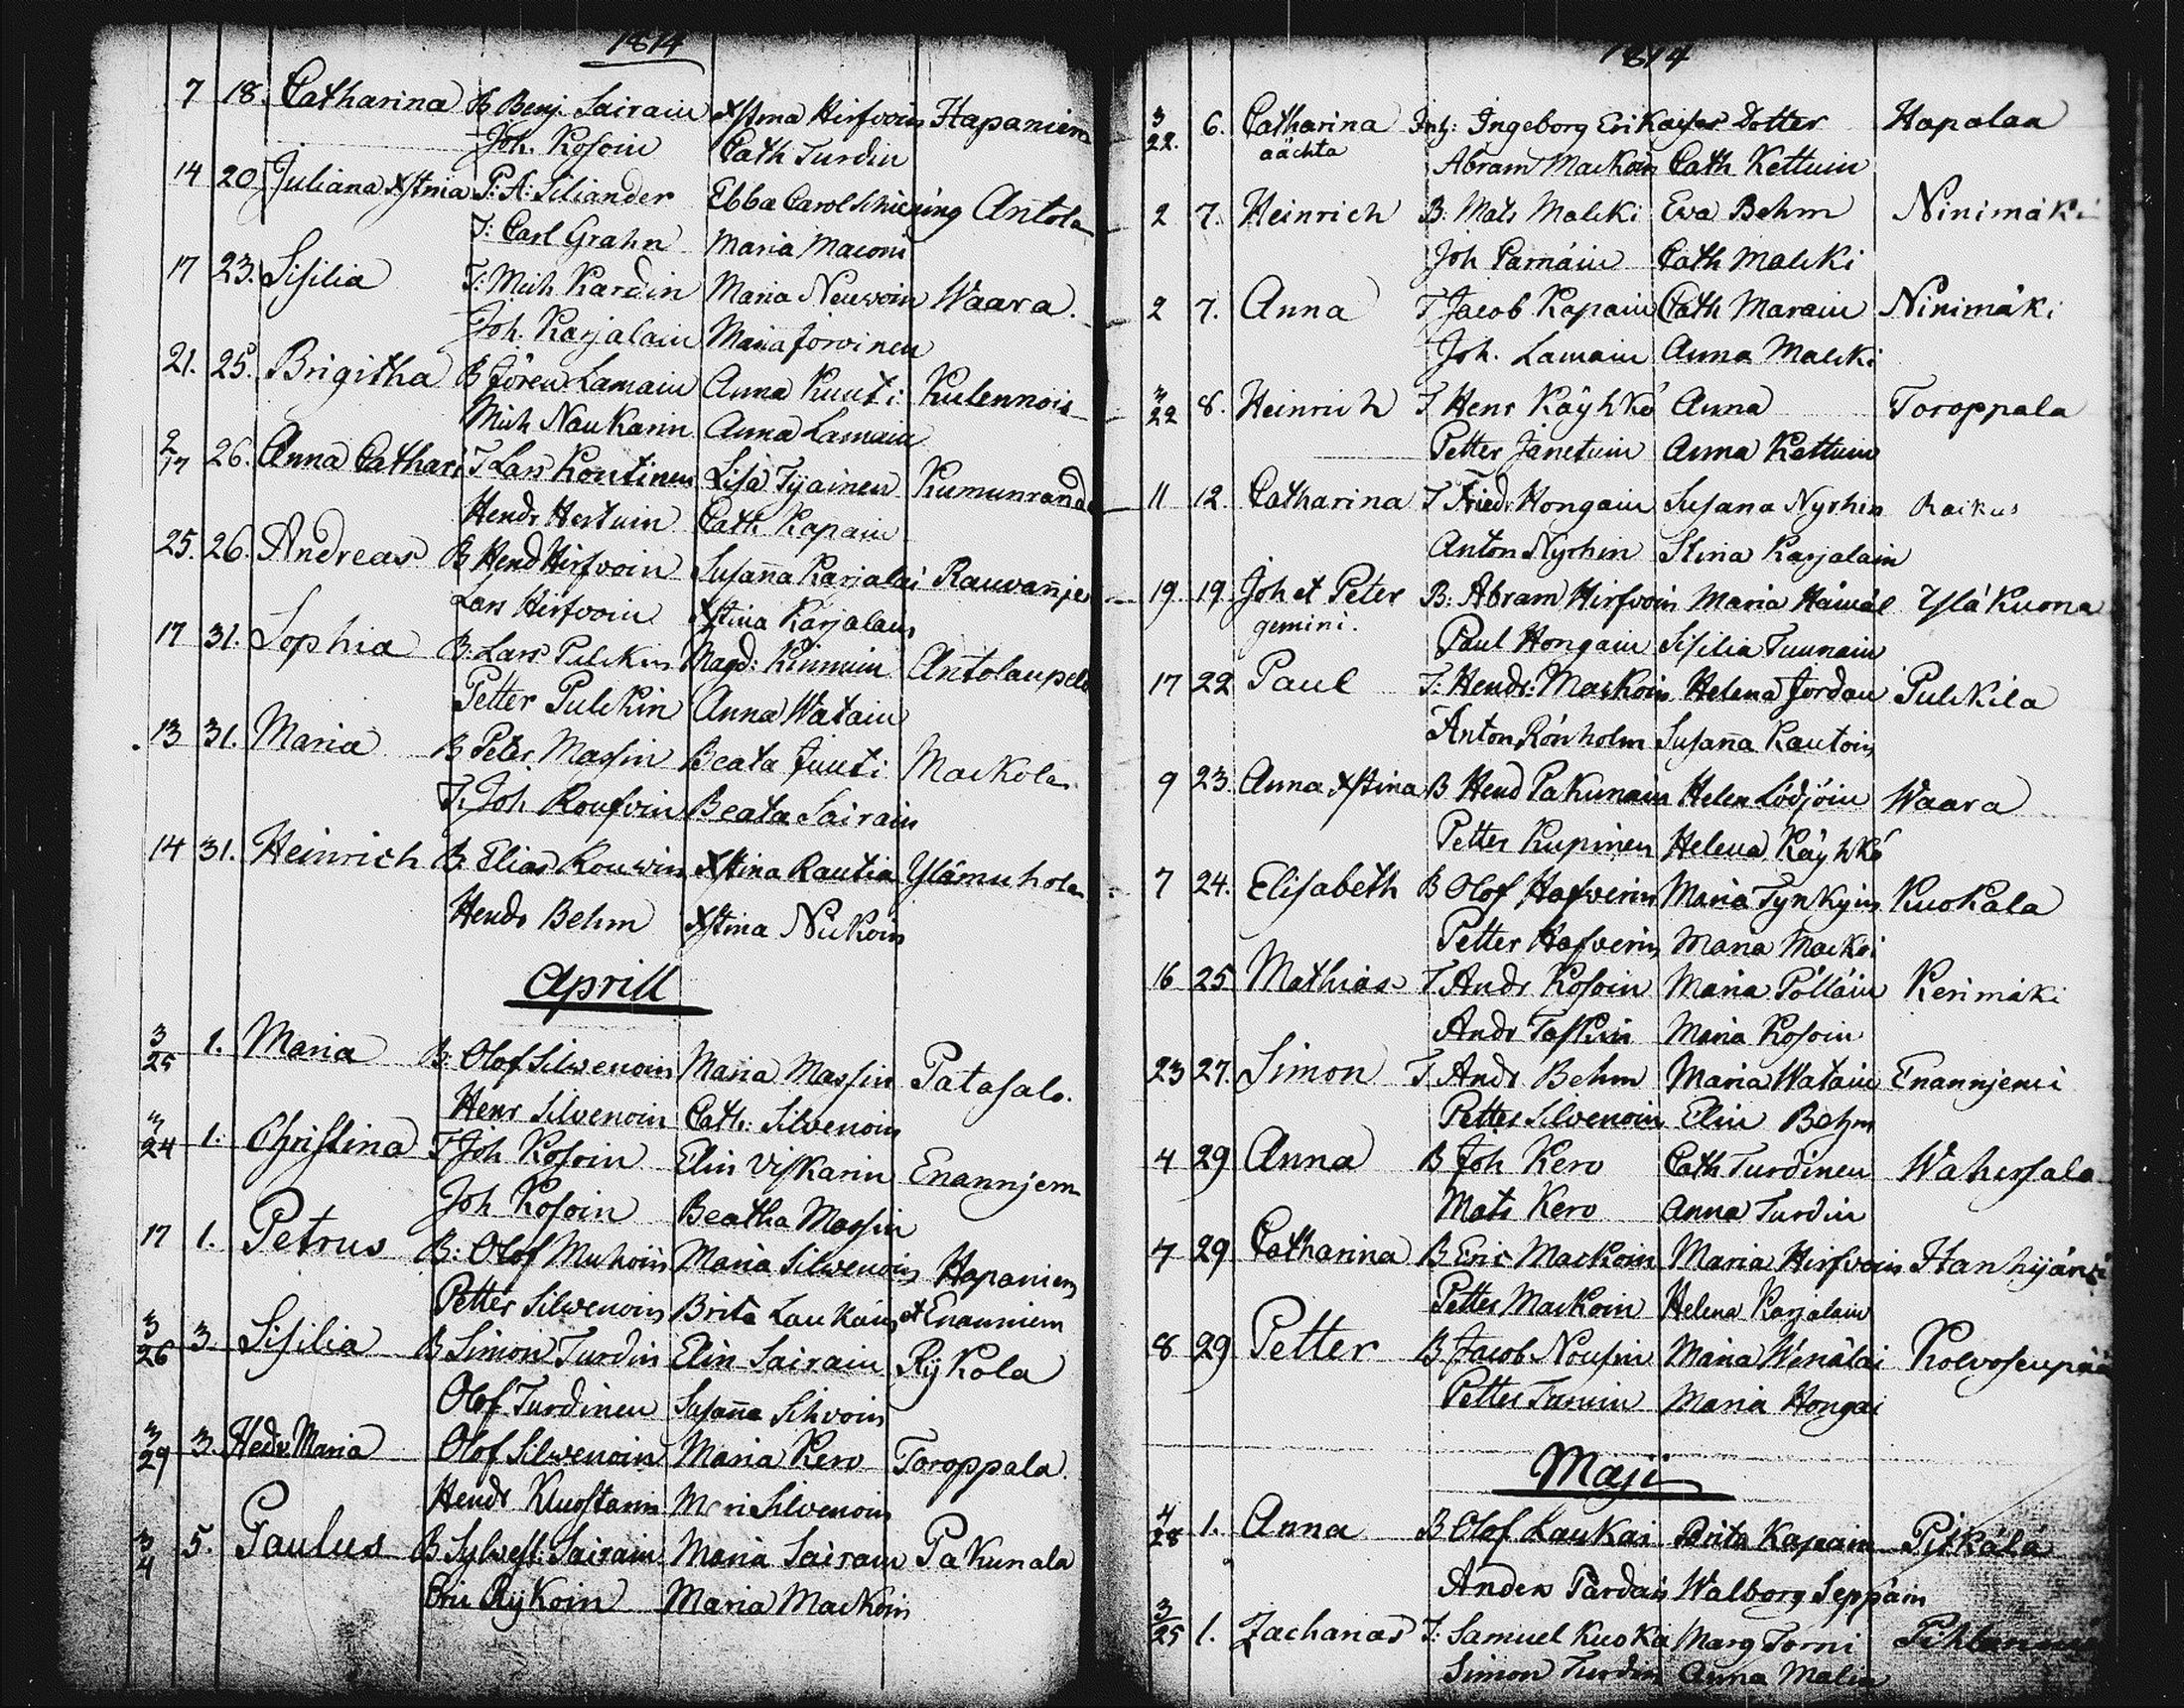 1814
7 18. Catharina B Benj. Sairain Xstina Hirfvoin Hapaniem
Joh. Kosoin Cath Turdin
14 20 Juliana Xstina P: A: Siliander Ebba Carol Schiering Antola
T: Carl Grahn Maria Maconi
17 23. Sisilia T: Mich Kardin Maria Neuvoin Waara.
Joh. Karjalain Maria Jorvinen
21. 25. Brigitha B Jören Lamain Anna Kuuti Kulennois
Mich Naukarin Anna Lamain
2/17 26. Anna Cathari T Lars Kontinen Lisa Tijainen Kumunranda
Hendr Hertuin Cath Kapain
25. 26. Andreas B Hend Hirfvoin Susanna Karjalai Rauvanje
Lars Hirfvoin Xstina Karjalain
17 31. Sophia B: Lars Pulckin Magd: Kinnuin Antolanpeld
Petter Pulckin Anna Watain
13 31. Maria B Peter Massin Beata Juuti Mackola
T. Joh. Roufvin Beata Sairain
14 31. Heinrich B. Elias Rouwin Xstina Rautia Ylämuhola
Hendr Behm Xstina Nukoin
Aprill
3/25 1. Maria B: Olof Silwenoin Maria Massin Patasalo.
Henr Silvenoin Cath: Silvenoin
3/24 1. Christina T Joh Kosoin Elin Viskarin Enannjem
Joh Kosoin Beatha Massin
17 1. Petrus B: Olof Muhoin Maria Silwenoin Hapaniem
Petter Silwenoin Brita Laukain et Enanniem
3/26 3. Sisilia B Simon Turdin Elin Sairain Rykola
Olof Turdinen Susanna Sihvoin
3/29 3. Hedv. Maria Olof Silwenoin Maria Kero Toroppala
Hendr Kluostarin Mari Silvenoin
3/4 5. Paulus B Sylvest: Sairain Maria Sairain Pakunala
Eric Rykoin Maria Mackoin
1814
3/22. 6. Catharina Inh: Ingeborg Ericaesar Dotter Hapalaa
aächta Abram Mackoin Cath Kettuin
2 7. Heinrich B. Mats Malcki Eva Behm Ninimäki
Joh Parnäin Cath Malcki
2 7. Anna T Jacob Kapain Cath Marain Ninimäki
Joh. Lamain Anna Malcki
3/22 8. Heinrich T Henr Käyhkö Anna Toroppala
Petter Janetuin Anna Kettuin
11 12. Catharina T Friedr Hongain Susana Nyrhin Raikus
Anton Nyrhin Stina Karjalain
19. 19. Joh et Peter B: Abram Hirfvoin Maria Hämäl Yläkuona
gemini. Paul Hongain Sisilia Tuunain
17 22 Paul T: Hendr: Mackoin Helena Jordan Pulckila
Anton Rönholm Susanna Rautoin
9 23. Anna Xstina B Hend Pakunain Helen Lödjöin Waara
Petter Kupinen Helena Käyhkö
7 24. Elisabeth B Olof Hafverin Maria Tynkyin Kuokala
Petter Hafverin Maria Mackoi
16 25 Mathias T Andr Kosoin Maria Pölläin Kerimäki
Andr Taskin Maria Kosoin
23 27. Simon T Andr Behm Maria Watain Enannjemi
Petter Silvenoin Elin Behm
4 29 Anna B Joh Kero Cath Turdinen Wahersalo
Mats Kero Anna Turdin
7 29 Catharina B Eric Mackoin Maria Hirfvoin Hanhijärvi
Petter Mackoin Helena Karjalain
8 29 Petter B Jacob Nousin Maria Wenälai Kolvosenpää
Petter Tanuin Maria Hongai
Maji
4/28 1. Anna B Olof Laukai Brita Kapain Pitkälä
Anders Pardain Walborg Seppäin
3/25 1. Zacharias T: Samuel Kuoka Marg Torni
Simon Turdin Anna Malin